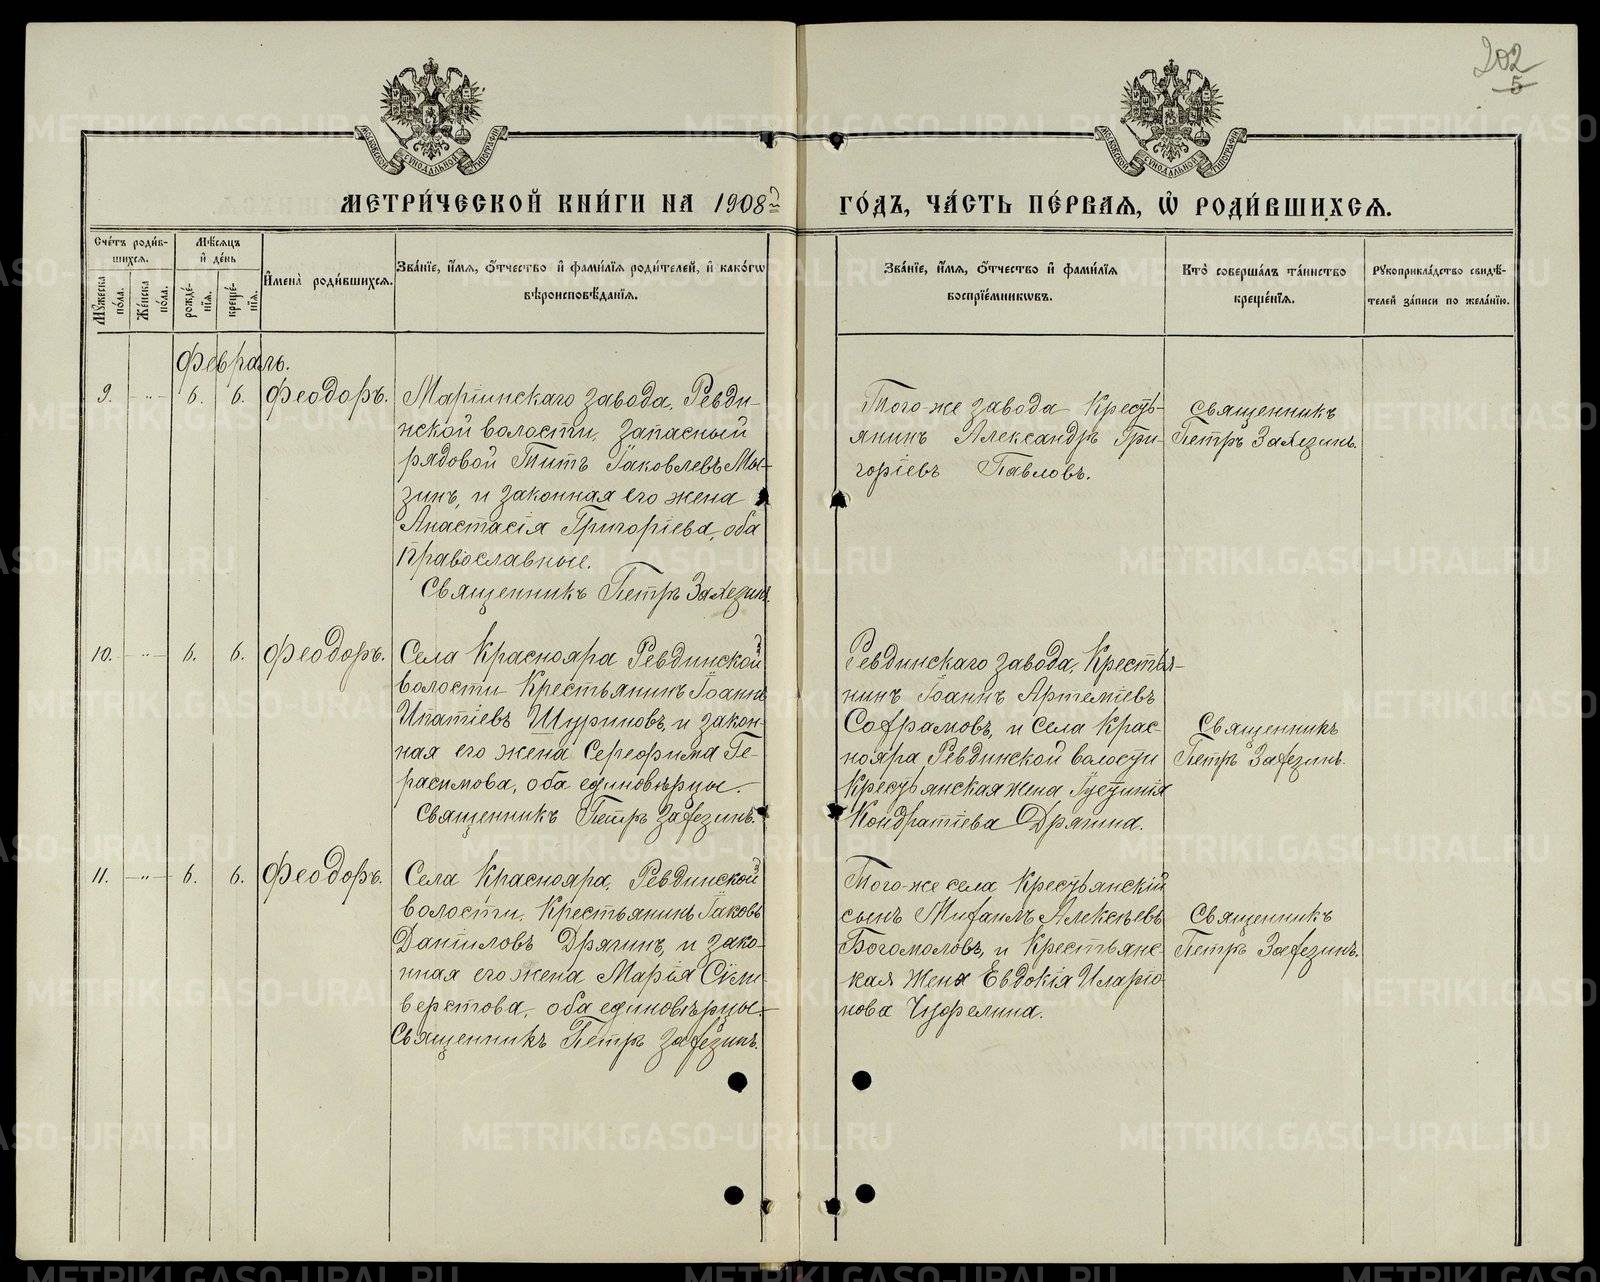 202
5
МОСКОВСКОЙ СѴНОДАЛЬНОЙ ТИПОГРАФІИ
МОСКОВСКОЙ СѴНОДАЛЬНОЙ ТИПОГРАФІИ
МЕТРИ́ЧЕСКОЙ КНИ́ГИ НА 1908й
ГО́ДЪ, ЧА́СТЬ ПЕ́РВАѦ, Ѡ҆ РОДИ́ВШИХСѦ.
Сче́тъ роди́в-
шихсѧ.
Мꙋ́жеска по́ла.
Же́нска по́ла.
Мѣ́сѧцъ
и҆ де́нь
рожде́-
нїѧ.
креще́-
нїѧ.
И҆мена̀ роди́вшихсѧ.
Зва́нїе, и҆́мѧ, ѻ҆́тчество и҆ фами́лїѧ роди́телей, и҆ како́гѡ
вѣроисповѣ́данїѧ.
Зва́нїе, и҆́мѧ, ѻ҆́тчество и҆ фами́лїѧ
воспрїе́мникѡвъ.
Кто̀ соверша́лъ та́инство
креще́нїѧ.
Рꙋкоприкла́дство свидѣ́-
телей за́писи по жела́нїю.
Февраль.
9. -"- 6. 6. Феодоръ.
Маріинскаго завода, Ревди-
нской волости, запасный
рядовой Титъ Іаковлевъ Мы-
зинъ, и законная его жена
Анастасія Григоріева, оба
православные.
Священникъ Петръ Захезинъ.
Того-же завода Кресть-
янинъ Александръ Гри-
горіевъ Павловъ.
Священникъ
Петръ Захезинъ.
10. -"- 6. 6. Феодоръ.
Села Краснояра Ревдинской
волости Крестьянинъ Іоаннъ
Ипатіевъ Шуриновъ, и закон-
ная его жена Серафима Ге-
расимова, оба единовѣрцы.
Священникъ Петръ Захезинъ.
Ревдинскаго завода, Крестья-
нинъ Іоаннъ Артеміевъ
Софрамовъ, и села Крас-
нояра Ревдинской волости
Крестьянская жена Іустинія
Кондратіева Дрягина.
Священникъ
Петръ Захезинъ.
11. -"- 6. 6. Феодоръ.
Села Краснояра, Ревдинской
волости, Крестьянинъ Іаковъ
Даниловъ Дрягинъ, и зако-
нная его жена Марія Сѵли-
верстова, оба единовѣрцы.
Священникъ Петръ Захезинъ.
Того-же села Крестьянскій
сынъ Михаилъ Алексѣевъ
Богомоловъ, и Крестьянс-
кая жена Евдокія Иларіо-
нова
Священникъ
Петръ Захезинъ.
METRIKI.GASO-URAL.RU